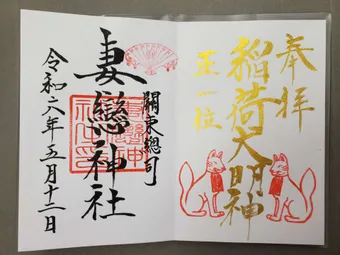 奉拝
稲荷大明神
正一位
關東總司
妻戀神社
令和六年五月十二日